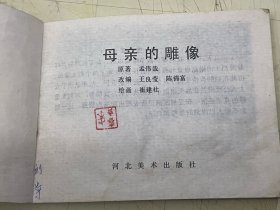 母亲的雕像
原著 孟伟哉
改编 王良莹 陈儒富
绘画 崔建社
河北美术出版社